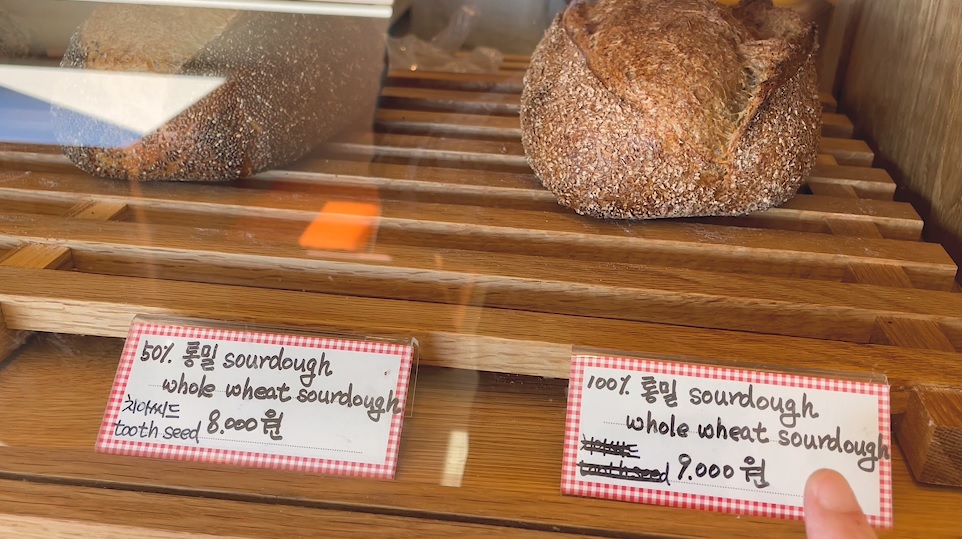 50% 통밀 sourdough
whole wheat sourdough
치아씨드
tooth seed 8.000원
100% 통밀 sourdough
whole wheat sourdough
tooth seed 9.000원